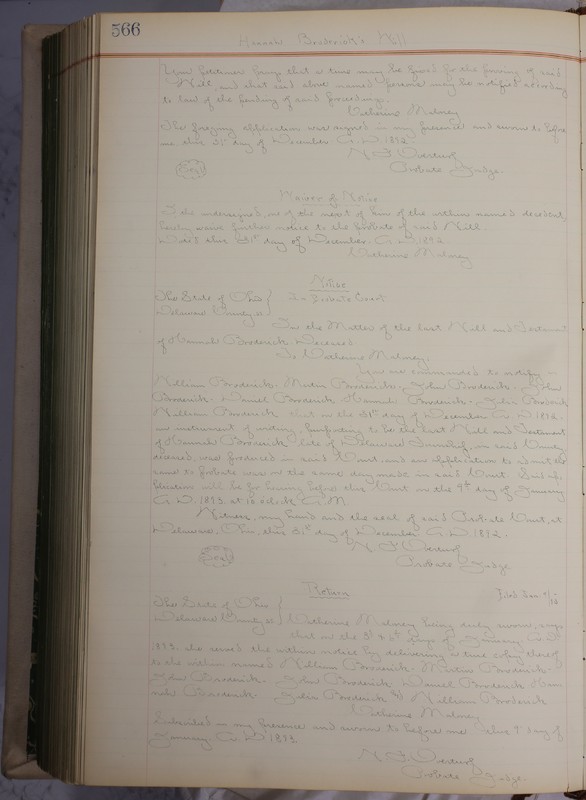 566
Hannah Broderick's Will
Your Petitioner prays that a time may be fixed for the proving of said
Will, and that said above named persons may be notified according
to law of the pending of said proceedings.
Catherine Maloney
The foregoing application was signed in my presence and sworn to before
me, this 31st day of December A.D. 1892.
Probate Judge.
Seal
Waiver of Notice
I, the undersigned, one of the next of kin of the within named decedent,
hereby waive further notice to the probate of said Will.
Dated this 31st day of December A.D. 1892
Catherine Maloney
Notice
The State of Ohio } In Probate Court.
Delaware County, ss
In the Matter of the Last Will and Testament
of Hannah Broderick Deceased
To Catherine Maloney:
You are commanded to notify
William Broderick, Martin Broderick, John Broderick, John
Broderick, Daniel Broderick, Hannah Broderick, John Broderick
William Broderick that on the 31st day of December A.D. 1892,
an instrument of writing purporting to be the Last Will and Testament
of Hannah Broderick late of Delaware Township, in said County
deceased, was produced in said Court, and an application to admit the
same to probate was on the same day made in said Court. Said ap-
plication will be for hearing before this Court on the 9th day of January
A.D. 1893, at 10 o'clock A.M.
Witness, my hand and the seal of said Probate Court, at
Delaware, Ohio, this 31st day of December A.D. 1892.
Probate Judge
Seal
Return
Filed Jan.
The State of Ohio }
Delaware County ss } Catherine Maloney being duly sworn, says
that on the days of January A.D.
1893, she served the within notice by delivering a true copy thereof
to the within named William Broderick, Martin Broderick
John Broderick, John Broderick, Daniel Broderick Han-
nah Broderick, John Broderick & William Broderick
Catherine Maloney
Subscribed in my presence and sworn to before me this day of
January A.D. 1893.
Probate Judge.